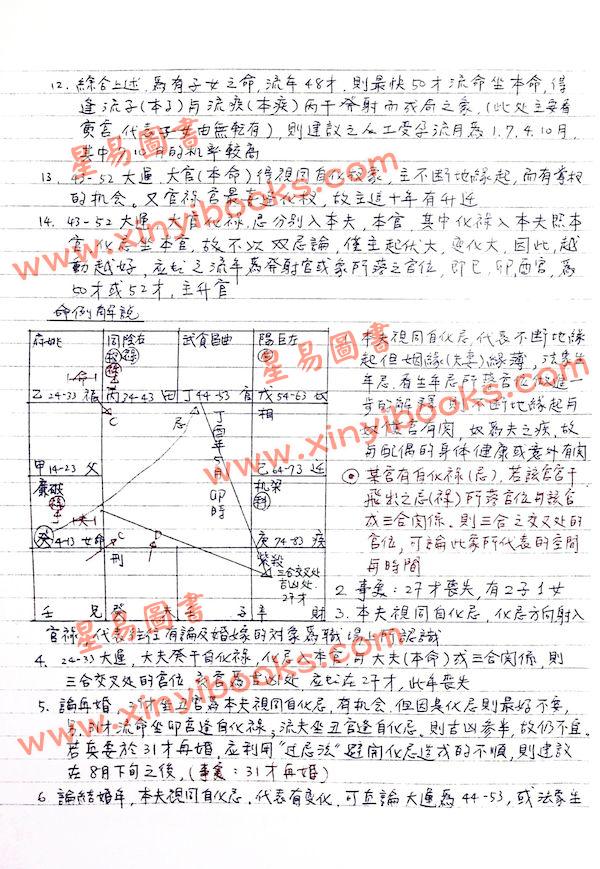 12. 綜合上述,為有子女之命,流年48才,則最快50才流命坐本命,得
逢流子(本子)與流疾(本疾)丙干發射而成局之象,(此处主要看
寅宮,代表子女由無轉有),則建議之人工受孕流月為1.7.4.10月,
其中 10月的机率較高
13. 43-52大運,大官(本命)得視同自化权象,主不断地緣起,而有掌权
的机会,又官祿宮最喜逢化权,故主這十年有升迁
14. 43-52大運,大官化祿.忌分別入本夫.本官,其中化祿入本夫照本
官,化忌坐本官,故不以双忌論,僅主起伏大,变化大,因此,越
動越好,应於之流年為發射宮或象所落之宮位,即巳.卯.酉宮,為
50才或52才,主升官
命例解說
府姚
同陰右
武貪昌曲
陽巨左
乙 24-33 福
丙 34-43 田
丁 44-53 官
戊 54-63 奴
命
忌
C
丁酉年5月 卯時
相
甲 14-23 父
己 64-73 迁
廉破
机梁
科
夫
癸 4-13 女命
庚 74-83 疾
C
D
刑
紫殺
三合交叉处
吉凶处.
27才
壬 兄
癸 夫
壬 子
辛 財
1. 本夫視同自化忌,代表不断地緣
起但姻緣(夫妻)緣薄,法象生
年忌,看生年忌所落宮位做進一
步的解讀,即不断地緣起与
奴僕宮有関,奴為夫之疾,故
与配偶的身体健康或意外有関
⊙ 某宮有自化祿(忌),若該宮宮干
飛出之忌(祿)所落宮位与該宮
成三合関係,則三合之交叉处的
宮位,可論此象所代表的空間
与時間
2. 事実:27才喪夫,有2子1女
3. 本夫視同自化忌,化忌方向射入
官祿,代表往往有論及婚嫁的対象為職場上所認識
4. 24-33大運,大夫癸干自化祿,化忌入本官,与大夫(本命)成三合関係,則
三合交叉处的宮位 宮為吉凶处,应於在27才,此年喪夫
5. 論再婚,才坐丑宮為本夫視同自化忌,有机会,但因是化忌則最好不要,
另,31才流命坐卯宮逢自化祿,流夫坐丑宮逢自化忌,則吉凶参半,故仍不宜.
若真要於31才再婚,应利用"过忌法"避開化忌造成的不順,則建議
在8月下旬之後,(事実:31才再婚)
6. 論結婚年,本夫視同自化忌,代表有变化,可直論大運為44-53,或法象生
星易圖書
www.xinyibooks.com
星易圖書
www.xinyibooks.com
星易圖書
www.xinyibooks.com